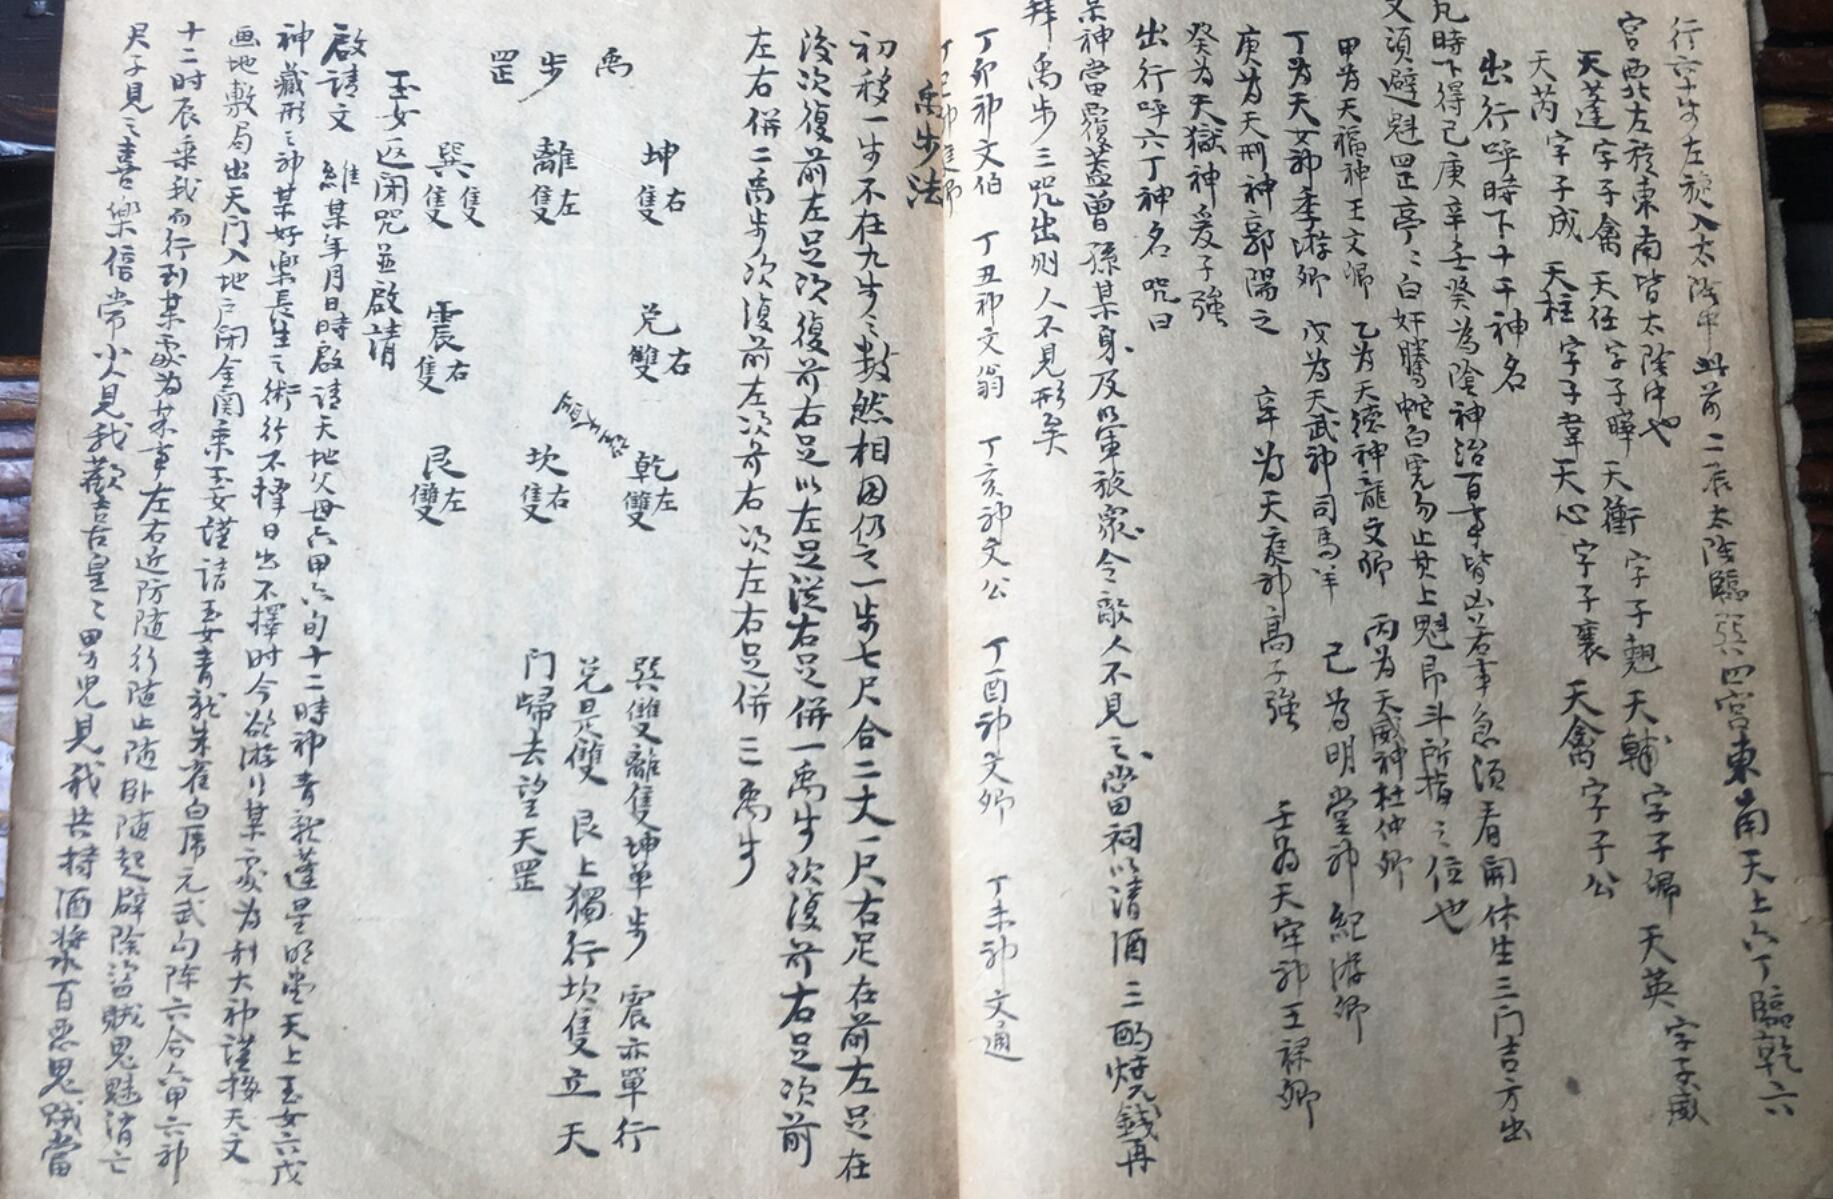 行六十步左旋入太陰中此前二辰太陰臨巽四宮東南天上六丁臨乾六
宮西北左於東南皆太陰中也
天蓬字子禽 天任字子暉 天衝字子翹 天輔字子卿 天英字子威
天芮字子成 天柱字子韋 天心字子襄 天禽字子公
出行呼時下十干神名
凡時下得己庚辛壬癸為陰神治百事皆凶若事急須看開休生三门吉方出
又須避魁罡亭亭白奸騰蛇白虎勿止其上魁罡即斗所指之位也
甲為天福神王文卿 乙為天德神龍文卿 丙為天威神杜仲卿
丁為天女神季游卿 戊為天武神司馬羊 己為明堂神紀游卿
庚為天刑神郭陽之 辛為天庭神高子強 壬為天牢神王祿卿
癸為天獄神爰子強
出行呼六丁神名 咒曰
某神當覆蓋曾孫某身及以軍旅眾令敵人不見之當田祠以清酒三酌燒錢再
拜禹步三咒出则人不見形矣
丁卯神文伯 丁丑神文翁 丁亥神文公 丁酉神文卿 丁未神文通
禹步法
初移一步不在九步之数然相因仍之一步七尺合二丈一尺右足在前左足在
後次復前左足次復前右足以左足從右足併一禹步次復前右足次前
左右併二禹步次復前左次前右次左右足併三禹步
禹步罡
坤 右隻
離 左隻
巽 隻隻
兑 右雙
震 右隻
乾 左雙
坎 右隻
艮 左雙
巽雙離隻坤單步 震亦單行
兑是雙 艮上獨行坎隻立 天
门歸去望天罡
玉女返闭咒並啟請
啟請文 維某年月日時啟請天地父母六甲六旬十二時神青龍蓬星明堂天上玉女六戊
神藏形之神某好樂長生之術行不擇日出不擇时今欲游行某處为利大神謹按天文
画地敷局出天门入地户闭金関乘玉女謹請玉女青龍朱雀白虎元武勾陣六合六甲六神
十二时辰乘我而行到某處为某事左右近防隨行隨止随卧随起辟除盗贼鬼魅消亡
君子見之喜樂倍常小人見我歡喜皇皇男兒見我共持酒漿百惡鬼贼當